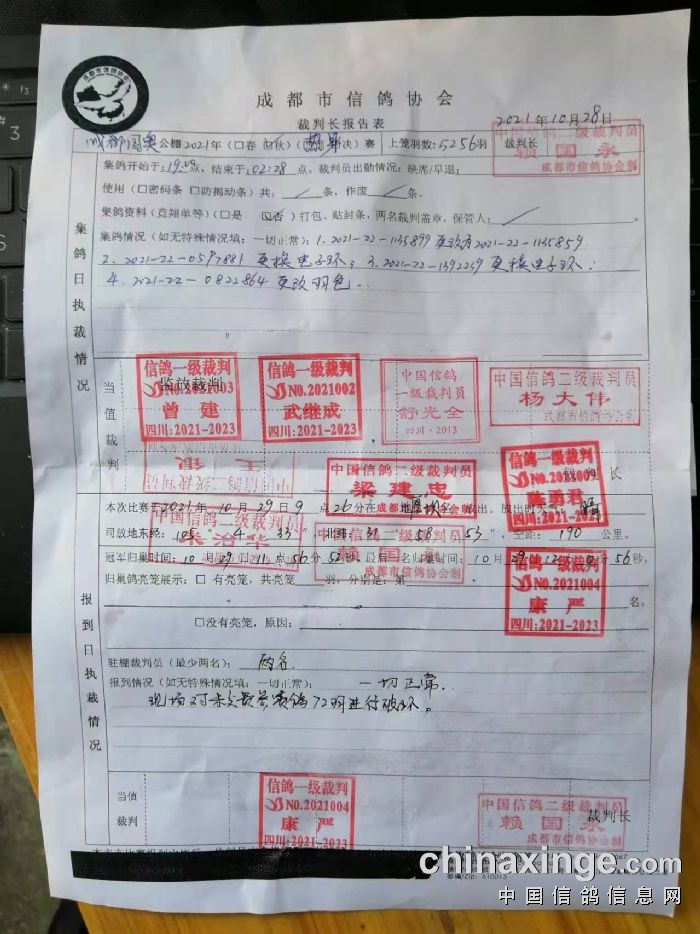 成都市信鸽协会
成都市信鸽协会
裁判长报告表
2021年10月28日
公棚2021年（□春 ☑秋）（ 决）赛 上笼羽数：5256羽 裁判长
中国信鸽二级裁判员
赖国永
成都市信鸽协会制
集鸽开始于：19:09点，结束于：02:28点。裁判员出勤情况：缺席/早退：
使用（□密码条 □防揭动条）共： 条，作废 条。
集鸽资料（竞翔单等）（□是 ☑否）打包、贴封条，两名裁判盖章，保管人：
集鸽情况（如无特殊情况填：一切正常）：1. 2021-22-1135899 更改为2021-22-1135859.
2. 2021-22-0597881 更换电子环；3. 2021-22-1392239更换电子环；
4. 2021-22-0822864 更改羽色。
集鸽日执裁情况
当值裁判
监放裁判
信鸽一级裁判
曾建
四川:2021-2023
信鸽一级裁判
NO.2021002
武继成
四川:2021-2023
中国信鸽
一级裁判员
舒光全
四川·2013
中国信鸽二级裁判员
杨大伟
中国信鸽二级裁判员
梁建忠
信鸽一级裁判
陈勇君
四川:2021-2023
裁判长
本次比赛于2021年10月29日9点26分在 放出，放出时天气：晴
司放地东经： 4 33" 北纬：31 58 53"，空距：190 公里。
冠军归巢时间：10月29日11点56分52秒，最后一名归巢时间：10月29 12 0分56秒，
归巢鸽亮笼展示：□ 有亮笼，共亮笼 羽，分别是：第
名。
□没有亮笼，原因：
中国信鸽二级裁判员
赖国永
成都市信鸽协会制
信鸽一级裁判
NO.2021004
康严
四川:2021-2023
报到日执裁情况
驻棚裁判员（最少两名）：两名
报到情况（如无特殊情况填：一切正常）： 一切正常.
现场对未交费参赛鸽72羽进行破环。
当值
裁判
信鸽一级裁判
NO.2021004
康严
四川:2021-2023
中国信鸽二级裁判员
赖国永
成都市信鸽协会制
裁判长
chinaxinge.com
中国信鸽信息网